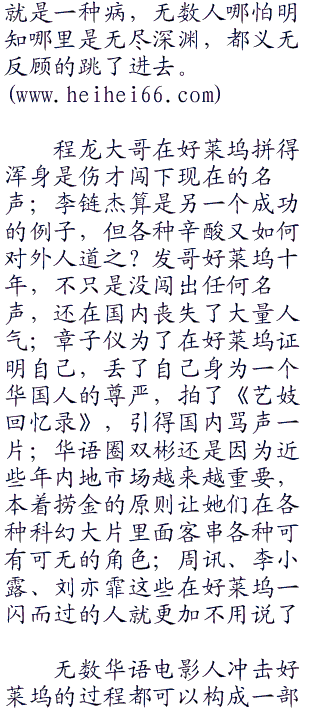 就是一种病，无数人哪怕明
知哪里是无尽深渊，都义无
反顾的跳了进去。
(www.heihei66.com)
程龙大哥在好莱坞拼得
浑身是伤才闯下现在的名
声；李链杰算是另一个成功
的例子，但各种辛酸又如何
对外人道之？发哥好莱坞十
年，不只是没闯出任何名
声，还在国内丧失了大量人
气；章子仪为了在好莱坞证
明自己，丢了自己身为一个
华国人的尊严，拍了《艺妓
回忆录》，引得国内骂声一
片；华语圈双彬还是因为近
些年内地市场越来越重要，
本着捞金的原则让她们在各
种科幻大片里面客串各种可
有可无的角色；周讯、李小
露、刘亦霏这些在好莱坞一
闪而过的人就更加不用说了
无数华语电影人冲击好
莱坞的过程都可以构成一部